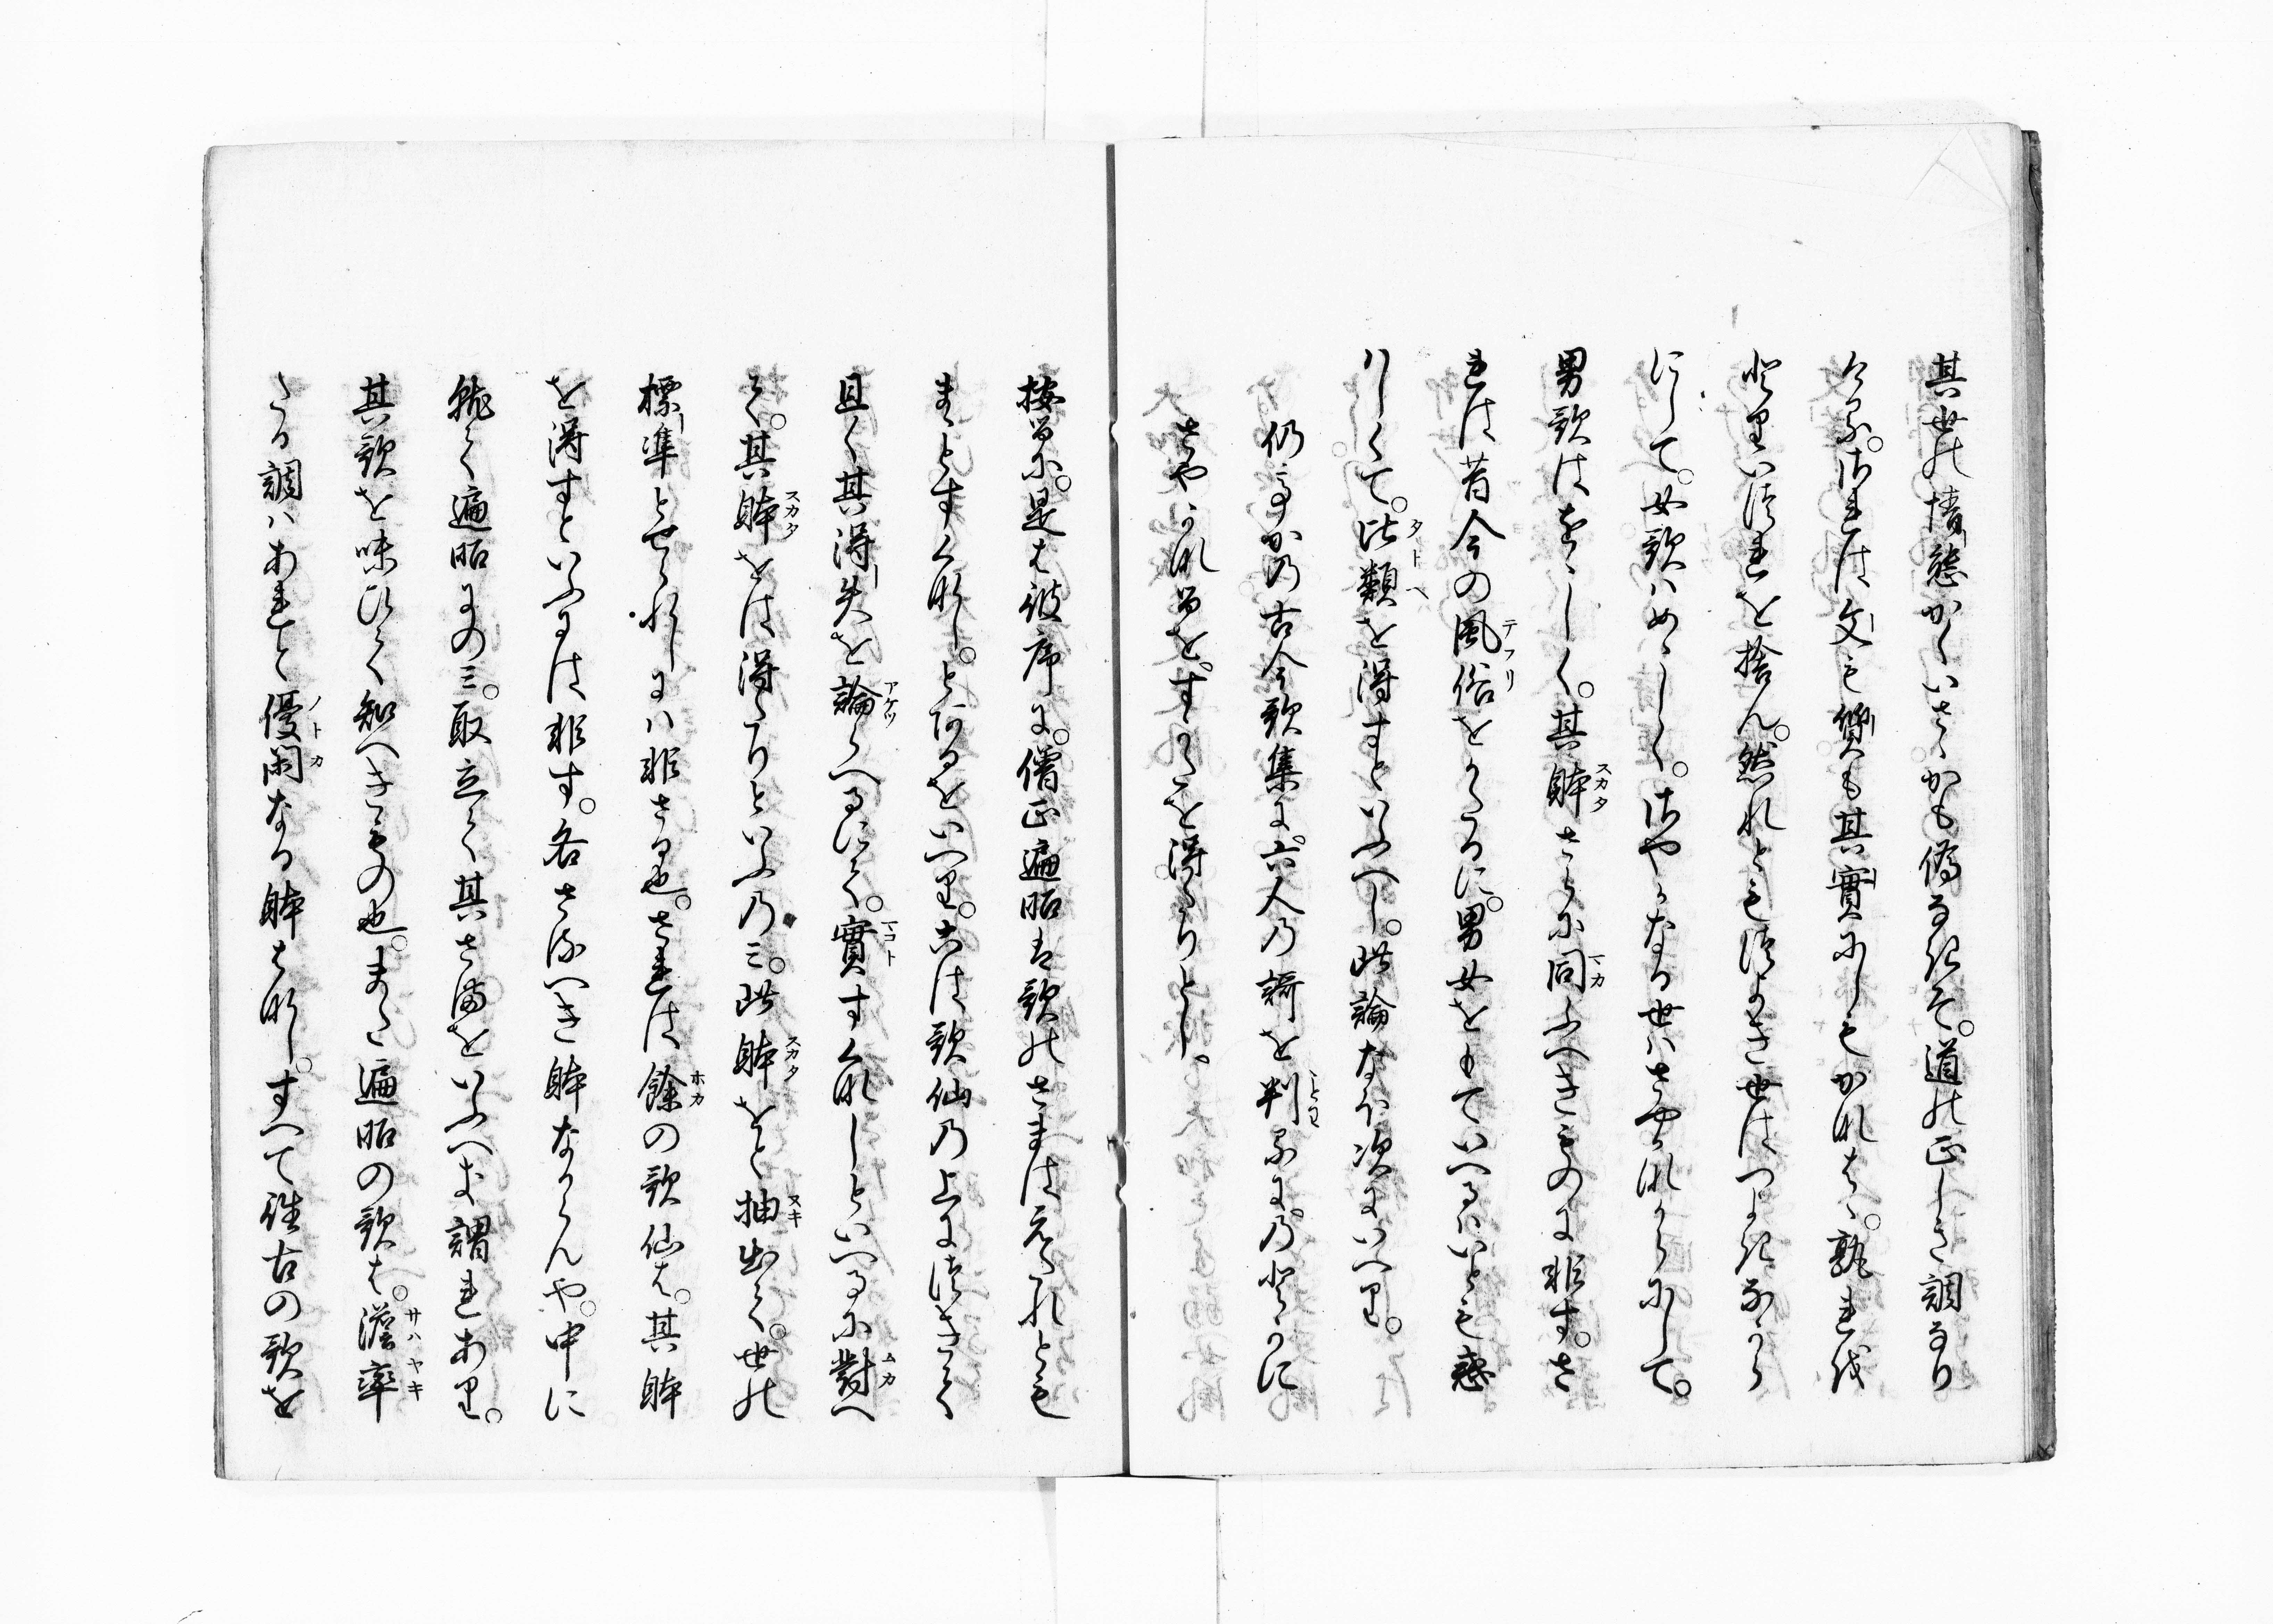 其世の情態かくいさゝかも偽なれそ。道の正しき調なり
ける。されは文も質も其實にしもかなはゝ。孰れ伐
とりいつれを捨ん。然れとも強よき世はつよきなから
にして。女歌はめゝしく。さやかなる世はさやかなからにして。
男歌はをゝしく。其躰さらに同ふへきものに非す。さ
れは昔今の風俗をかたるに。男女をもていへるはいとも惑
はしくて。比類を得すといふへし。此論なほ次にいへり。
仍真かの古今歌集に。六人の謌を判るに。乃とかに
さやかなるを。すかたを得たりとし。
按るに。是は彼序に。僧正遍昭は歌のさまはえたれとも
まことすくなし。とあるをいへり。こは歌仙の上に強きて
且く其得失を論らへるにて。實すくなしといへるに對へ
て。其躰をは得たりといふのみ。此躰をと抽出て。世の
標準とせられしには非さる也。されは餘の歌仙は。其躰
を得すといふには非す。各さるへき躰なからんや。中に
就て遍昭にのみ。取立て其さまをいふへき謂れあり。
其歌を味ひて知へきもの也。また遍昭の歌は。澹率
たる調はあれと優閑なる躰はなし。すへて往古の歌を